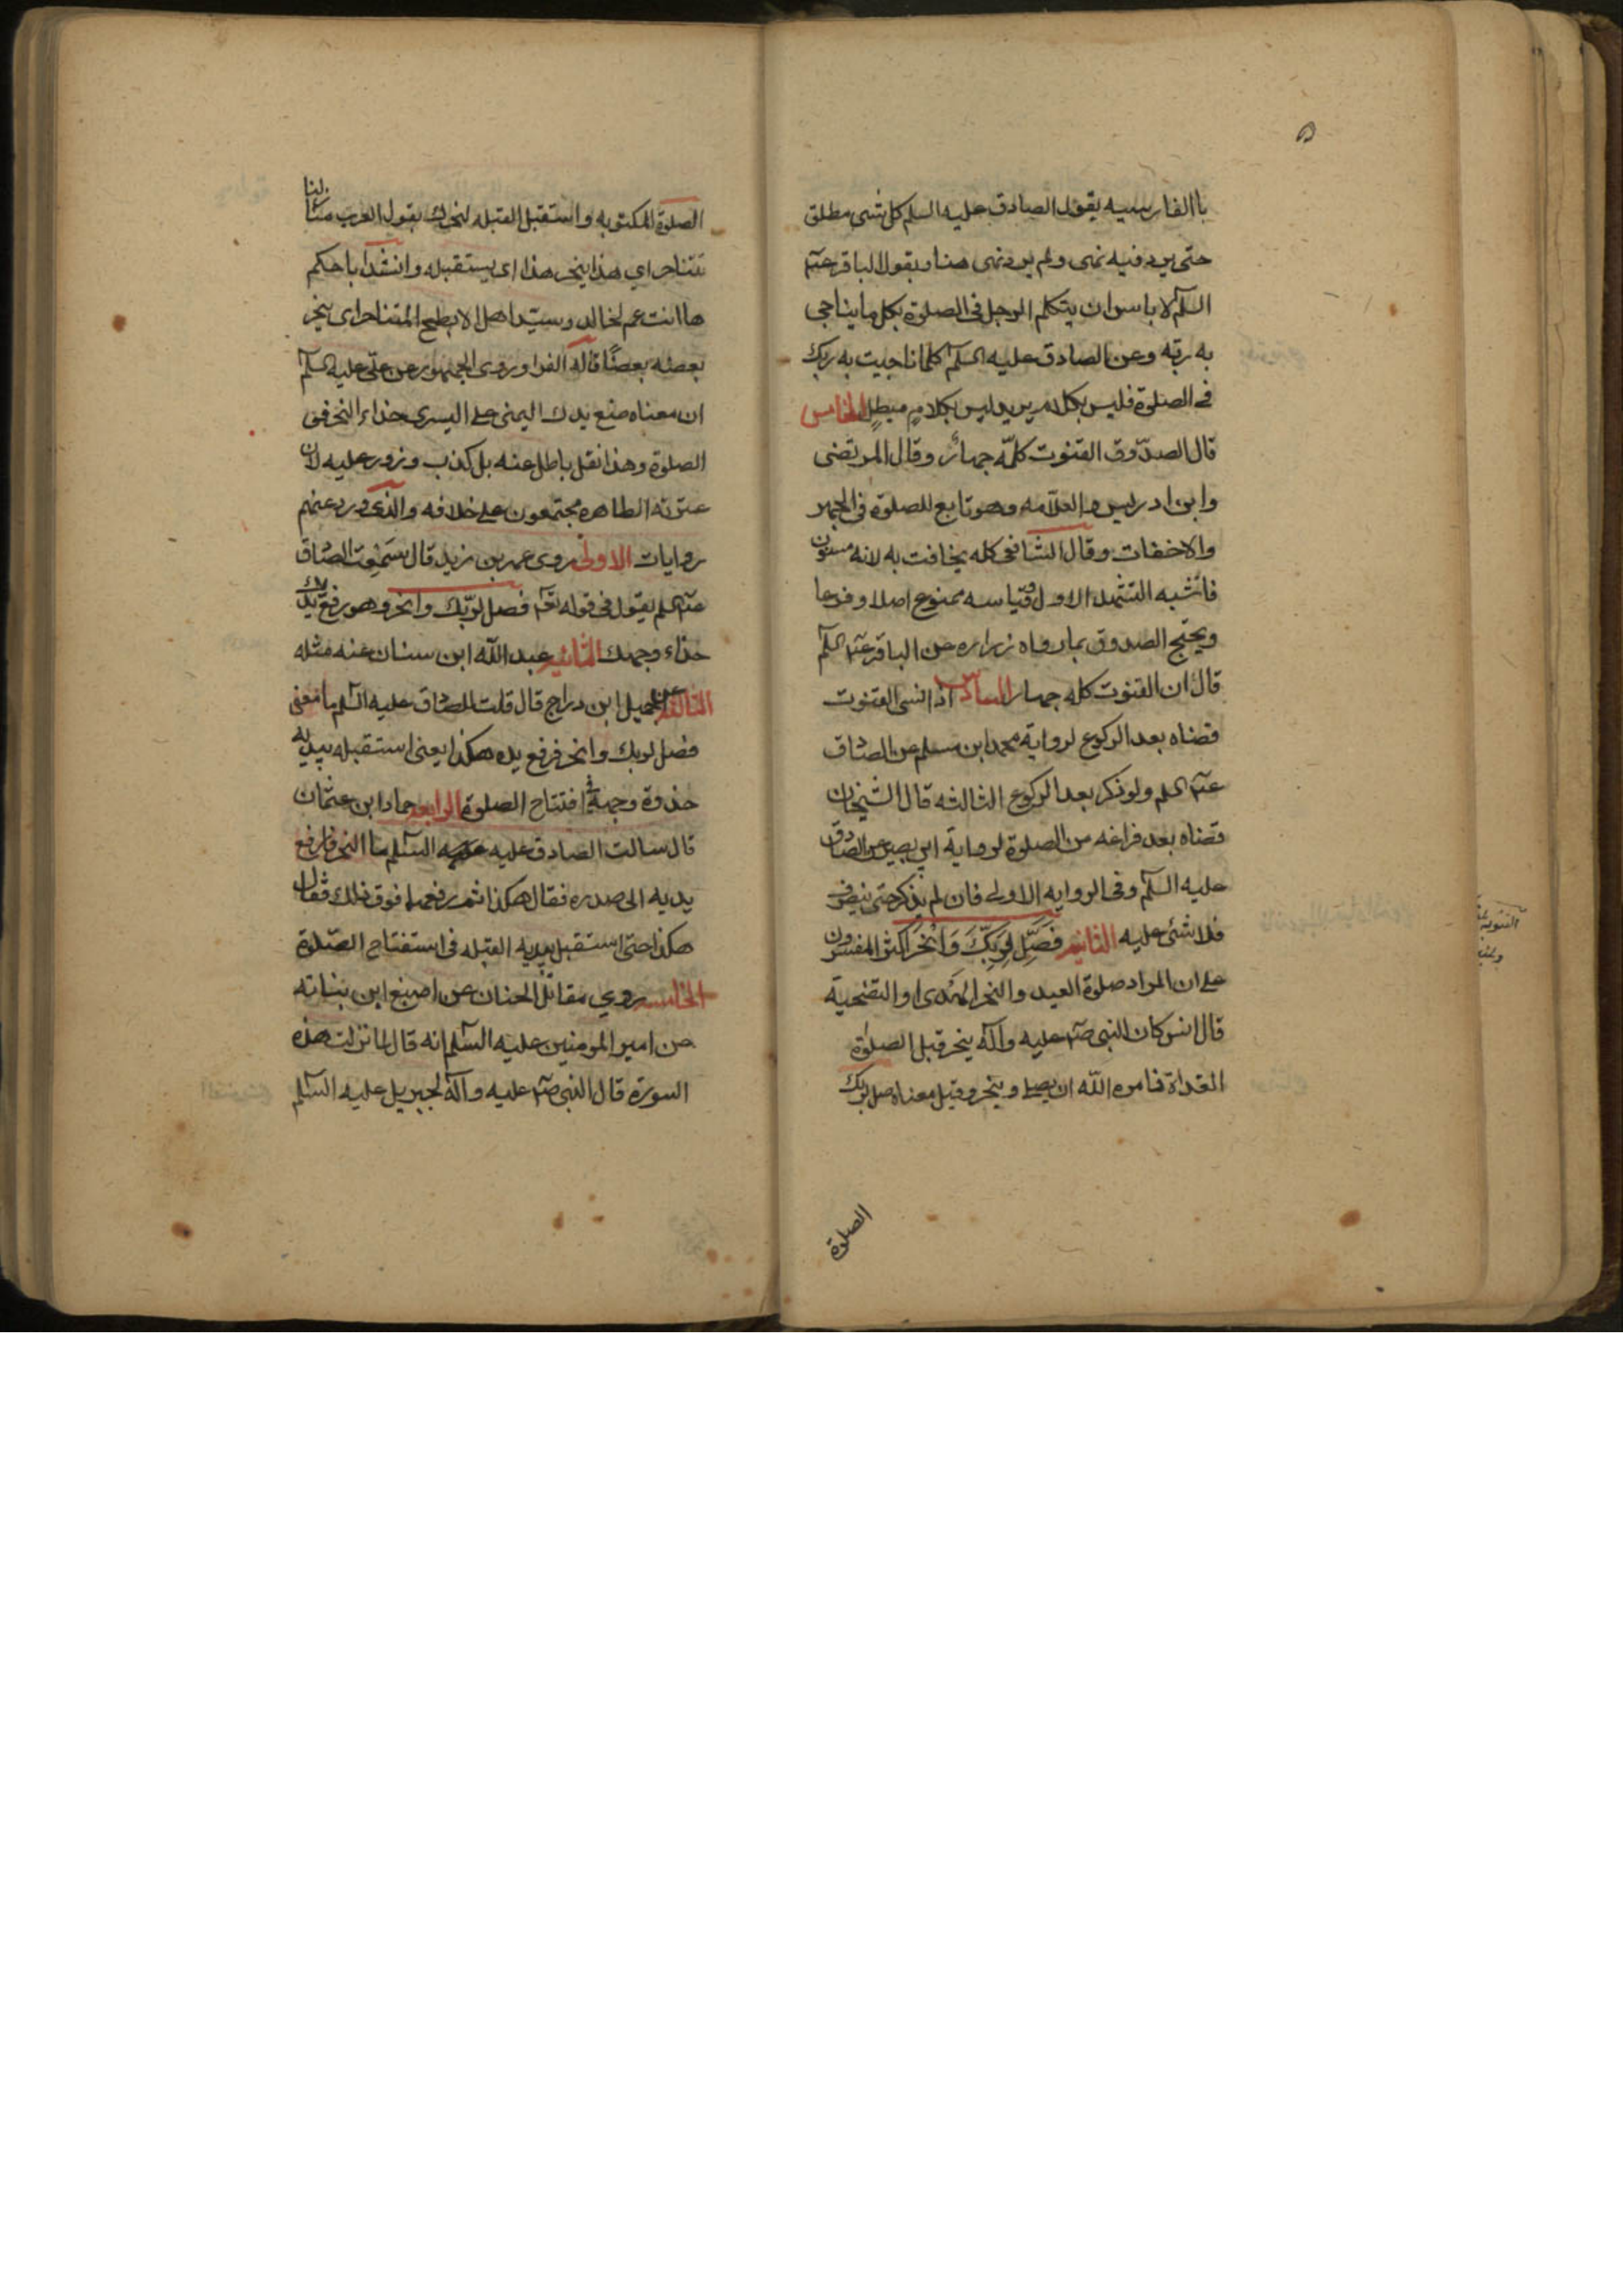 باالفارسيه بقول الصادق عليه السلم كل شى مطلق
حتى يرد فيه نهى ولم يرد نهى هنا وبقول الباقر عليه
السلم لا باس ان يتكلم الرجل فى الصلوة بكل ما يناجى
به ربه وعن الصادق عليه السلم كلما ناجيت به ربك
فى الصلوة فليس بكلام يريد ليس بكلام مبطل الخامس
قال الصدوق القنوت كلّه جهار وقال المرتضى
وابن ادريس والعلامه وهو تابع للصلوة فى الجهر
والاخفات وقال الشافعى كله يخافت به لانه مسنون
فاشبه التشهد الاول وقياسه ممنوع اصلا وفرعا
ويحتج الصدوق بما رواه زراره عن الباقر عليه السلم
قال ان القنوت كله جهار السادس اذا نسى القنوت
قضاه بعد الركوع لرواية محمد ابن مسلم عن الصادق
عليه السلم ولو ذكر بعد الركوع الثالثه قال الشيخان
قضاه بعد فراغه من الصلوة لرواية ابى بصير عن الصادق
عليه السلم وفى الروايه الاولى فان لم يذكر حتى ينصرف
فلا شئ عليه الثانيه فَصَلِّ لِرَبِّكَ وَانْحَر اكثر المفسرون
على ان المراد صلوة العيد والنحر الهدى او التضحية
قال انس كان النبى صلى الله عليه وآله ينحر قبل الصلوة
الغداة فامره الله ان يصلى وينحر وقيل معناه صل لربك
الصلوة
الصلوة المكتوبه واستقبل القبله لنحرك بقول العرب منازلنا
تتناحر اي هذا ينحر هذا اى يستقبله وانشد اباحكم
ها انت عم لخالد وسيد اهل الابطح المتناحر اى ينحر
بعضه بعضًا قاله الفرا وروى الجمهور عن على عليه السلم
ان معناه ضع يدك اليمنى على اليسرى حذاء النحر فى
الصلوة وهذا نقل باطل عنه بل كذب وزور عليه لان
عترته الطاهره مجتمعون على خلافه والذى ورد عنهم
روايات الاولى روى عمر بن زيد قال سَمِعْت الصادق
عليه السلم يقول فى قوله تعالى فصل لربّك وانحر وهو رفع يدك
حذاء وجهك الثانيه عبد الله ابن سنان عنه مثله
الثالثه عن جميل ابن دراج قال قلت للصادق عليه السلم ما معنى
فصل لربك وانحر فرفع يده هكذا يعنى استقبله بيديه
حذوة وجهه فى افتتاح الصلوة الرابعه حماد ابن عثمان
قال سالت الصادق عليه السلم ما النحر فرفع
يديه الى صدره فقال هكذا ثم رفعها فوق ذلك فقال
هكذا حتى استقبل بيديه القبله فى استفتاح الصلوة
الخامسه روي مقاتل الحنان عن اصبغ ابن نباته
عن امير المومنين عليه السلم انه قال لما نزلت هذه
السورة قال النبى صلى الله عليه وآله لجبريل عليه السلم